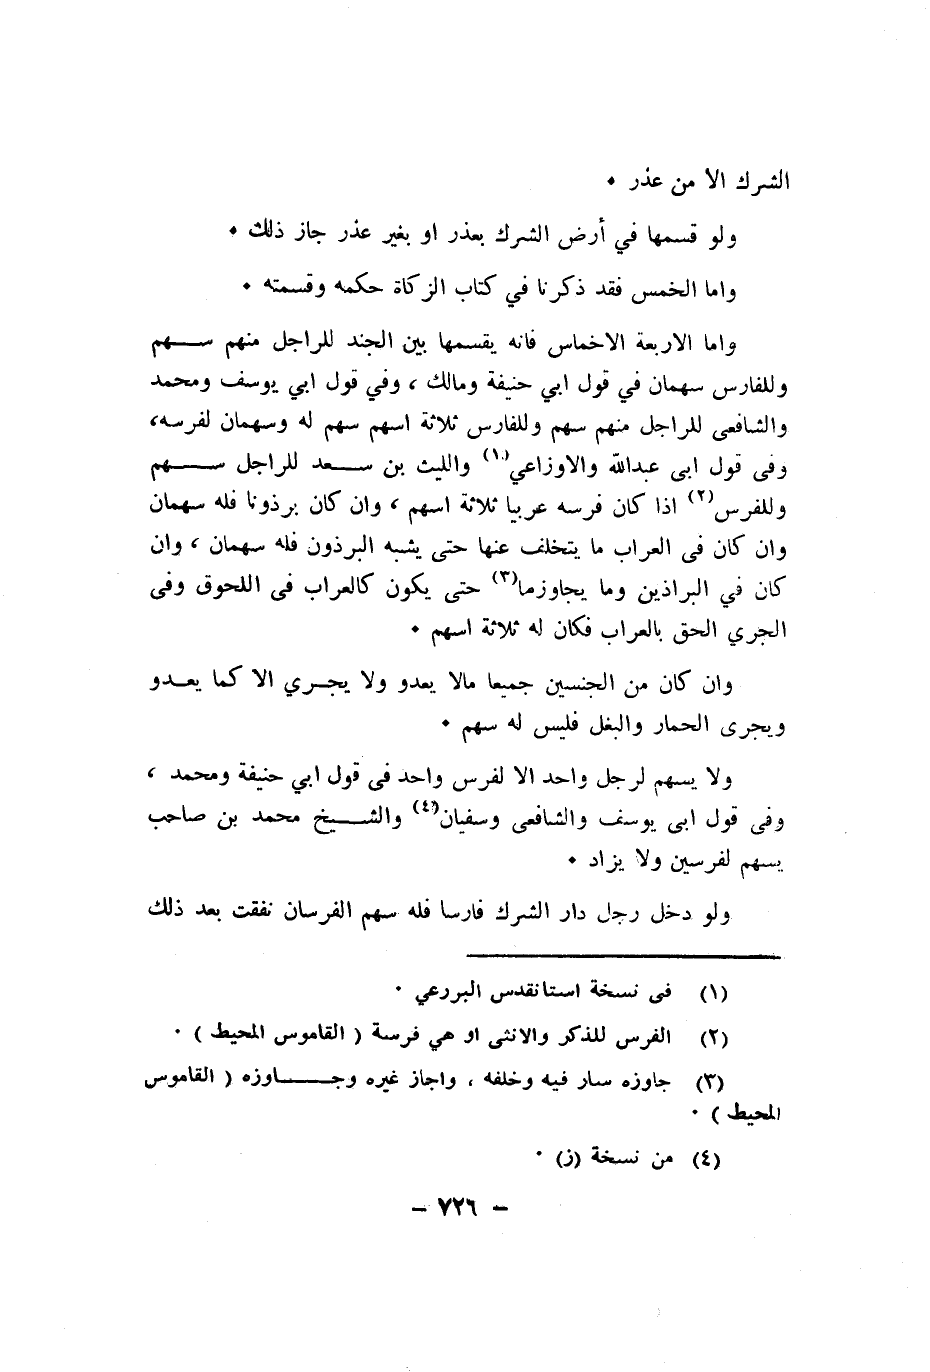 الشرك الا من عذر ٠
ولو قسمها في أرض الشرك بعذر او بغير عذر جاز ذلك ٠
واما الخمس فقد ذكرنا في كتاب الزكاة حكمه وقسمته ٠
واما الاربعة الاخماس فانه يقسمها بين الجند للراجل منهم سهم
وللفارس سهمان في قول ابي حنيفة ومالك ، وفي قول ابي يوسف ومحمد
والشافعى للراجل منهم سهم وللفارس ثلاثة اسهم سهم له وسهمان لفرسه،
وفى قول ابى عبدالله والاوزاعي(١) والليث بن سعد للراجل سهم
وللفرس(٢) اذا كان فرسه عربيا ثلاثة اسهم ، وان كان برذونا فله سهمان
وان كان فى العراب ما يتخلف عنها حتى يشبه البرذون فله سهمان ، وان
كان في البراذين وما يجاوزما(٣) حتى يكون كالعراب فى اللحوق وفى
الجري الحق بالعراب فكان له ثلاثة اسهم ٠
وان كان من الجنسين جميعا مالا يعدو ولا يجري الا كما يعدو
ويجرى الحمار والبغل فليس له سهم ٠
ولا يسهم لرجل واحد الا لفرس واحد فى قول ابي حنيفة ومحمد ،
وفى قول ابى يوسف والشافعى وسفيان(٤) والشيخ محمد بن صاحب
يسهم لفرسين ولا يزاد ٠
ولو دخل رجل دار الشرك فارسا فله سهم الفرسان نفقت بعد ذلك
(١) فى نسخة استانقدس البررعي ٠
(٢) الفرس للذكر والانثى او هي فرسة ( القاموس المحيط ) ٠
(٣) جاوزه سار فيه وخلفه ، واجاز غيره وجاوزه ( القاموس
المحيط ) ٠
(٤) من نسخة (ز) ٠
– ٧٢٦ –